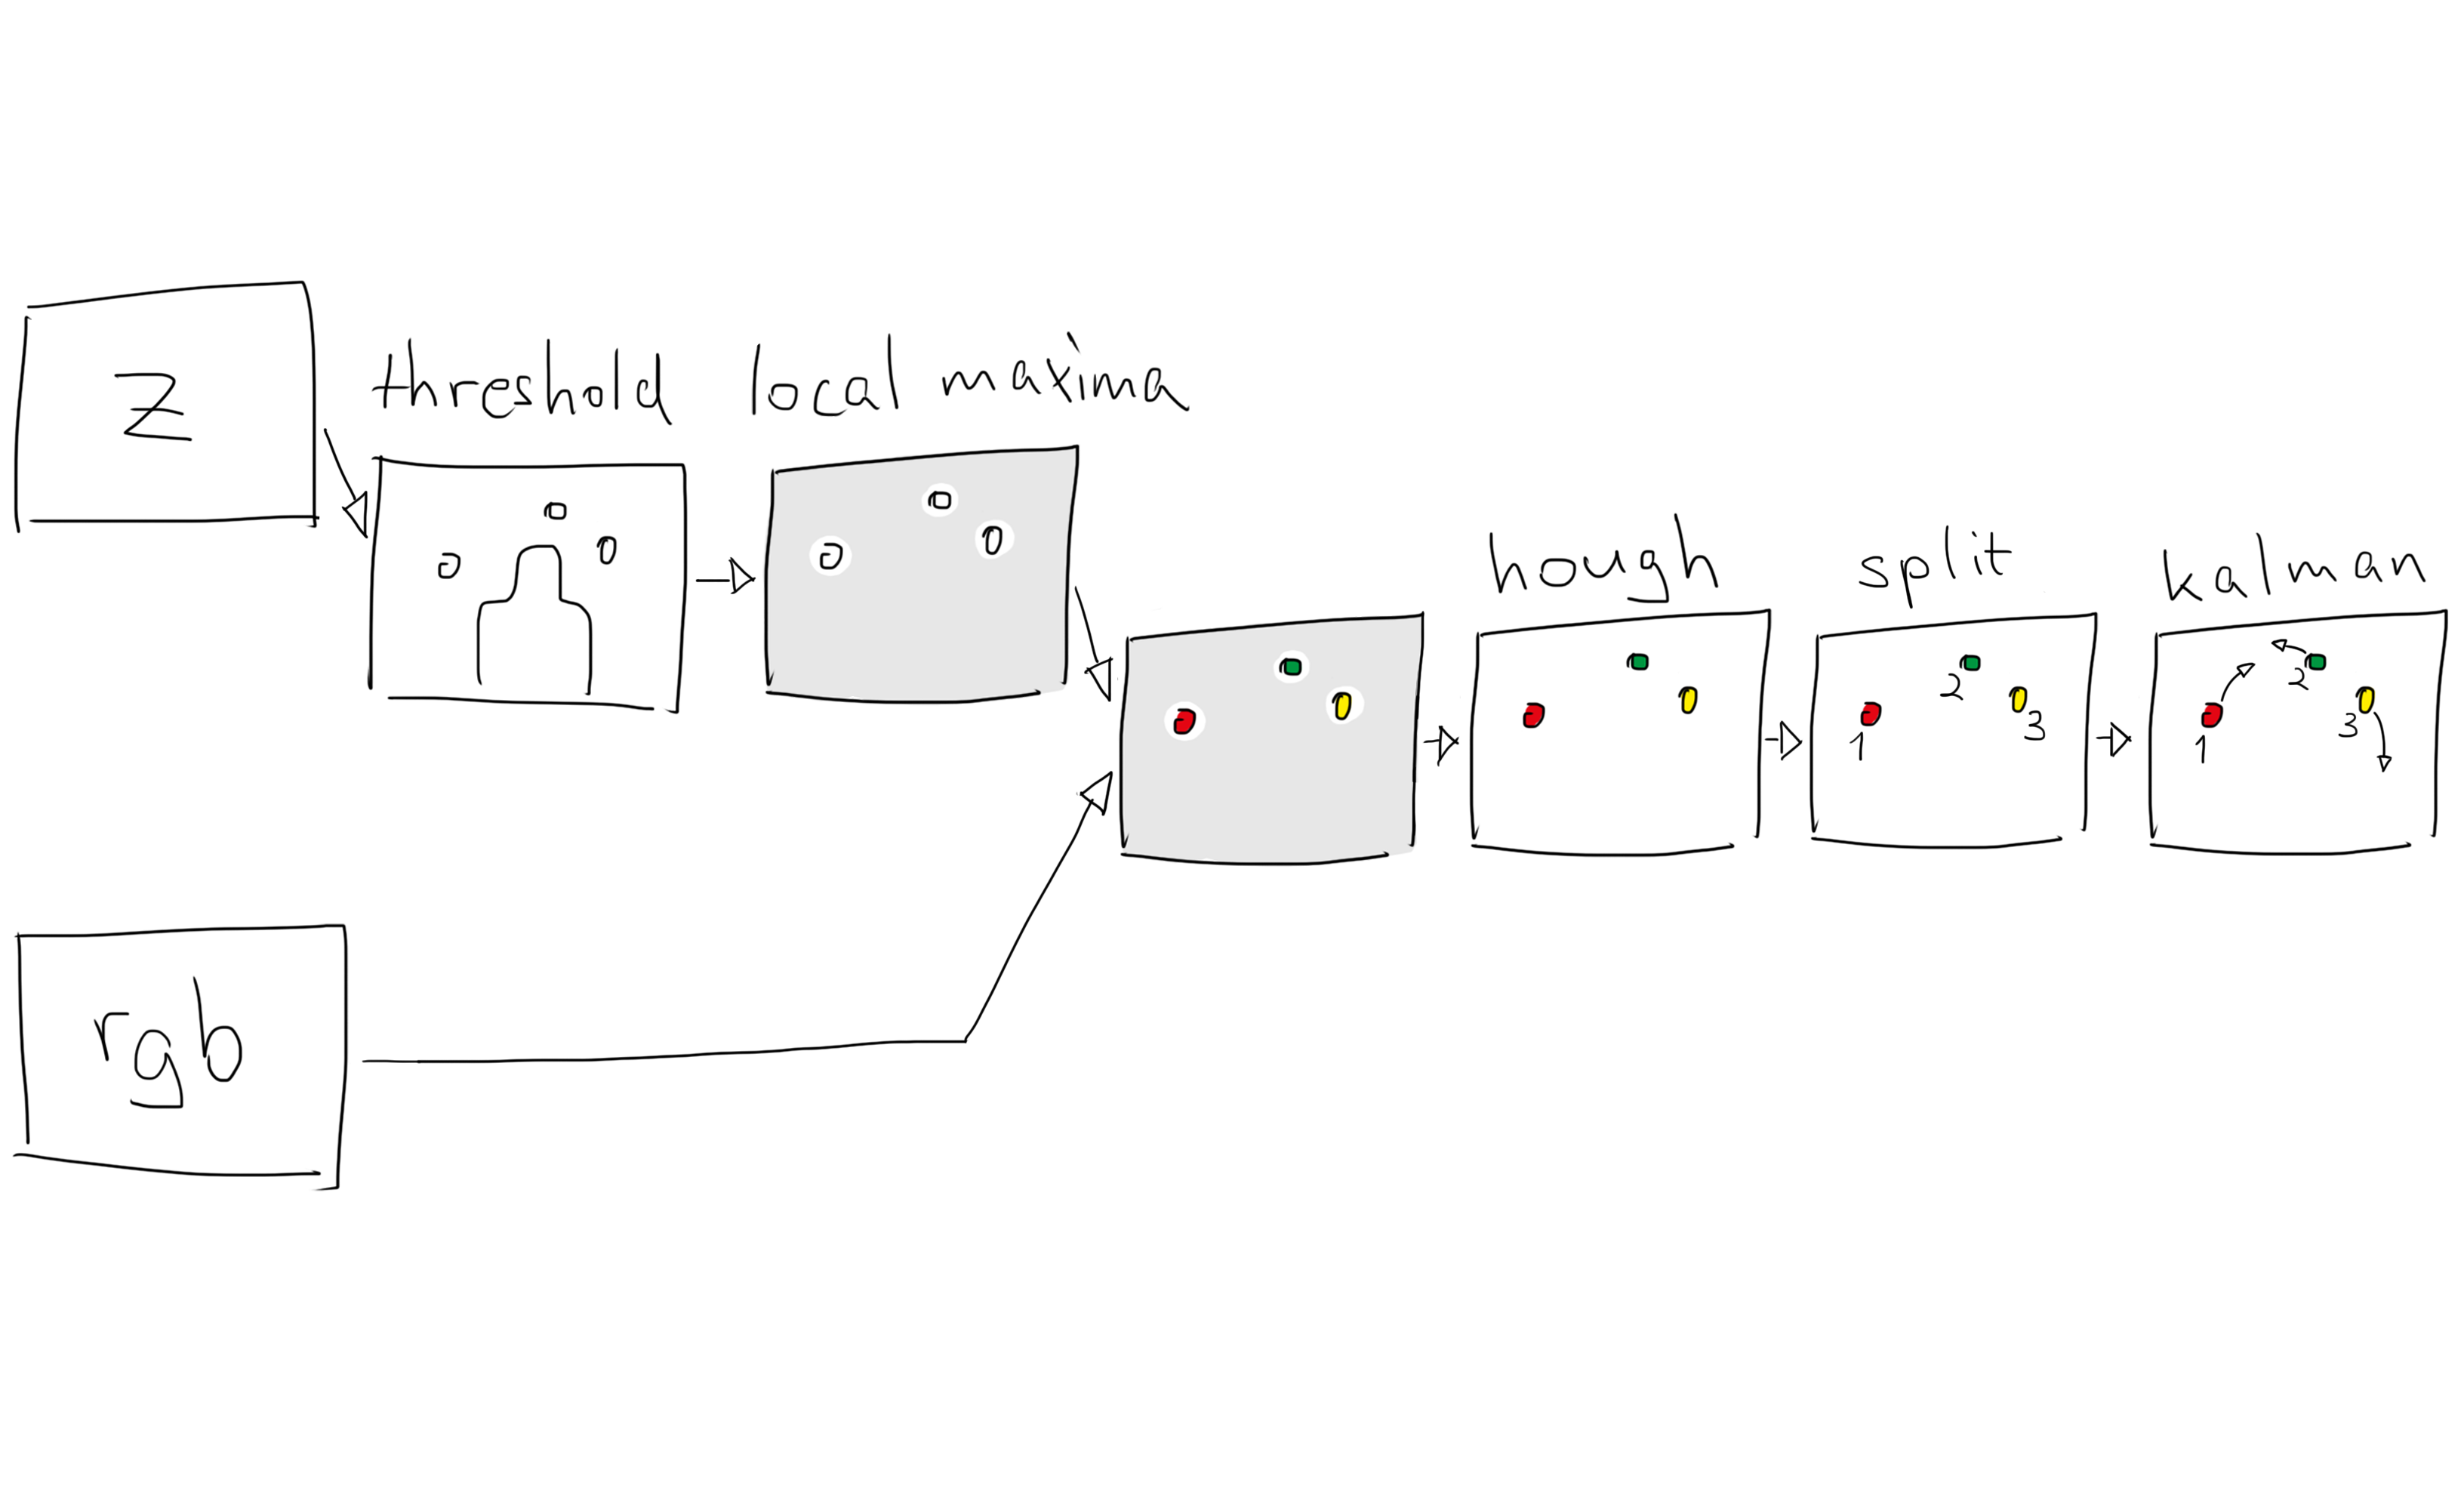 z
threshold
local maxima
hough
split
kalman
1
2
3
1
2
3
rgb